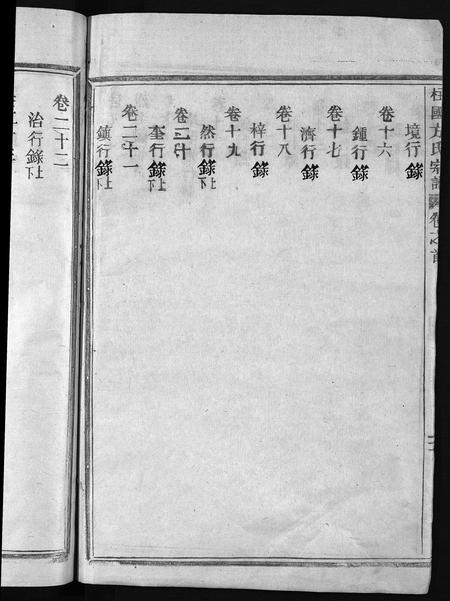 柱國方氏宗譜 卷之首
境行錄
卷十六
鍾行錄
卷十七
濟行錄
卷十八
梓行錄
卷十九
然行錄上下
卷二十
奎行錄上下
卷二十一
鎮行錄上下
卷二十二
治行錄上下